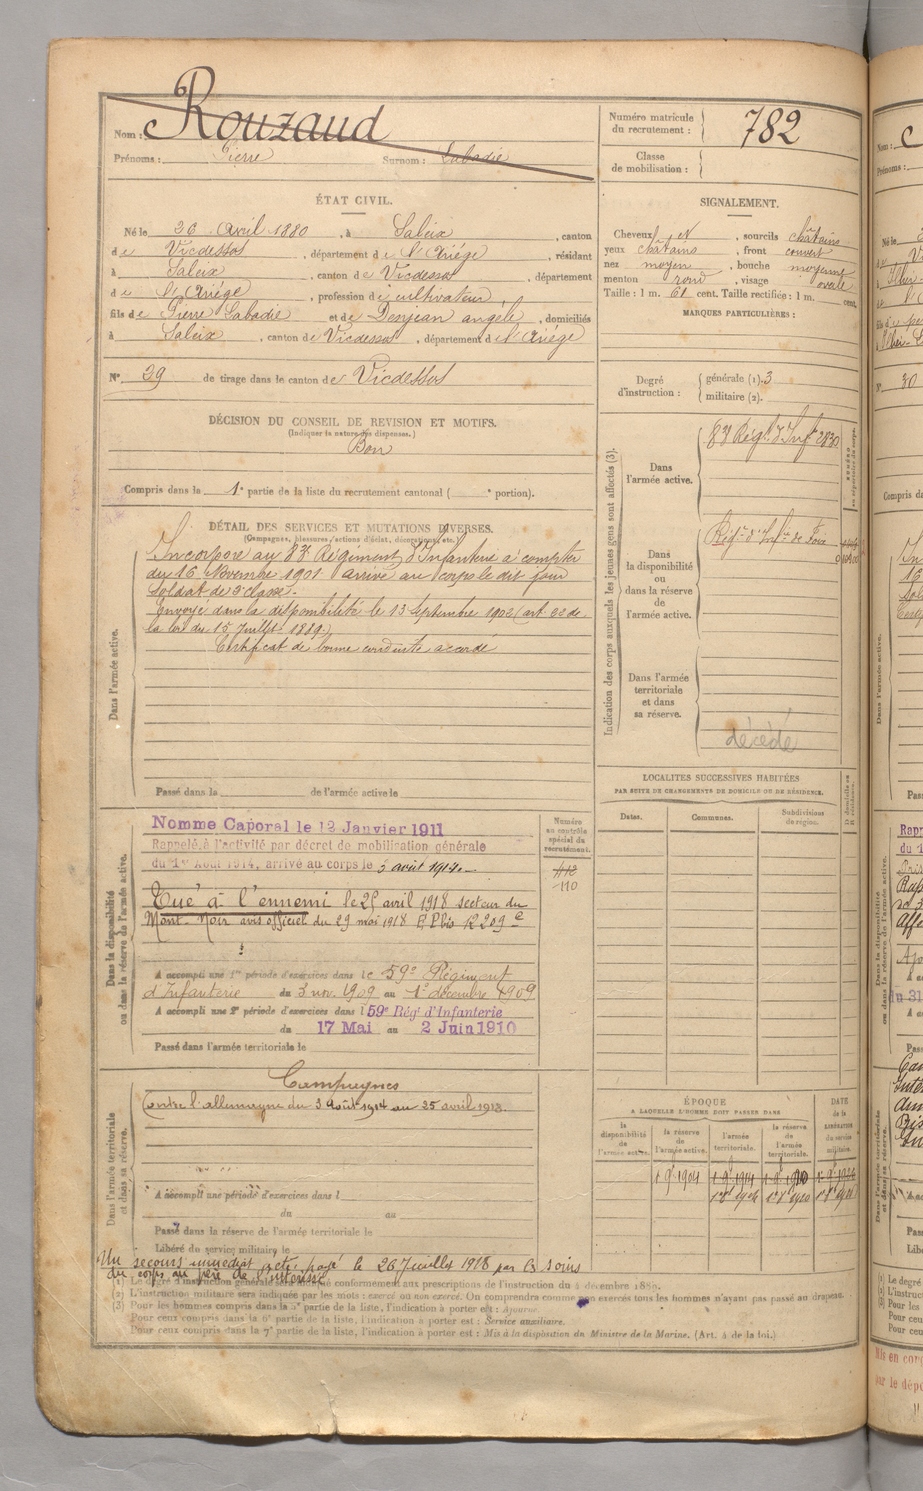 Nom : Rouzaud
Prénoms : Pierre Surnom : Labadie
Numéro matricule du recrutement : 782
Classe de mobilisation :
ÉTAT CIVIL.
Né le 20 Avril 1880, à Saleix, canton
de Vicdessos, département de l'Ariége, résidant
à Saleix, canton de Vicdessos, département
de l'Ariége, profession de cultivateur
fils de Pierre Labadie et de Denjean angèle, domiciliés
à Saleix, canton de Vicdessos, département de l'Ariége
N° 29 de tirage dans le canton de Vicdessos
SIGNALEMENT.
Cheveux et, sourcils châtains
yeux châtains, front couvert
nez moyen, bouche moyenne
menton rond, visage ovale
Taille : 1 m. 61 cent. Taille rectifiée : 1 m. cent.
MARQUES PARTICULIÈRES :
Degré d'instruction : générale (1). 3
militaire (2).
DÉCISION DU CONSEIL DE REVISION ET MOTIFS.
(Indiquer la nature des dispenses.)
Bon
Compris dans la 1e partie de la liste du recrutement cantonal ( e portion).
DÉTAIL DES SERVICES ET MUTATIONS DIVERSES.
(Campagnes, blessures, actions d'éclat, décorations, etc.)
Dans l'armée active.
Incorporé au 83e Régiment d'Infanterie à compter
du 16 Novembre 1901 arrivé au corps le dit jour
Soldat de 2e classe.
Envoyé dans la disponibilité le 13 Septembre 1902 (art 22 de
la loi du 15 Juillet 1889.)
Certificat de bonne conduite accordé
Passé dans la de l'armée active le
Indication des corps auxquels les jeunes gens sont affectés (3).
Dans l'armée active.
83e Régt d'Inf 2830
Dans la disponibilité ou dans la réserve de l'armée active.
Régt d'Infie de Foix
Dans l'armée territoriale et dans sa réserve.
décédé
LOCALITÉS SUCCESSIVES HABITÉES
PAR SUITE DE CHANGEMENTS DE DOMICILE OU DE RÉSIDENCE.
Dates. Communes. Subdivisions de région.
Dans la disponibilité ou dans la réserve de l'armée active.
Nommé Caporal le 12 Janvier 1911
Rappelé à l'activité par décret de mobilisation générale
du 1er Août 1914, arrivé au corps le 3 août 1914.
Tué à l'ennemi le 25 avril 1918 secteur du
Mont-Noir avis officiel du 29 mai 1918
Numéro au contrôle spécial du recrutement.
412
110
A accompli une 1re période d'exercices dans le 59e Régiment
d'Infanterie du 3 nov. 1909 au 1er décembre 1909
A accompli une 2e période d'exercices dans le 59e Régt d'Infanterie
du 17 Mai au 2 Juin 1910
Passé dans l'armée territoriale le
Dans l'armée territoriale et dans sa réserve.
Campagnes
Contre l'allemagne du 3 Août 1914 au 25 avril 1918.
A accompli une période d'exercices dans l
du au
Passé dans la réserve de l'armée territoriale le
Libéré du service militaire le
Un secours immédiat a été payé le 26 Juillet 1918 par les soins
du corps au père de l'intéressé
ÉPOQUE
A LAQUELLE L'HOMME DOIT PASSER DANS
la disponibilité de l'armée active. la réserve de l'armée active. l'armée territoriale. la réserve de l'armée territoriale. DATE de la LIBÉRATION du service militaire.
(1) Le degré d'instruction générale sera indiqué conformément aux prescriptions de l'instruction du 4 décembre 1889.
(2) L'instruction militaire sera indiquée par les mots : exercé ou non exercé. On comprendra comme non exercés tous les hommes n'ayant pas passé au drapeau.
(3) Pour les hommes compris dans la 5e partie de la liste, l'indication à porter est : Ajourné.
Pour ceux compris dans la 6e partie de la liste, l'indication à porter est : Service auxiliaire.
Pour ceux compris dans la 7e partie de la liste, l'indication à porter est : Mis à la disposition du Ministre de la Marine. (Art. 4 de la loi.)